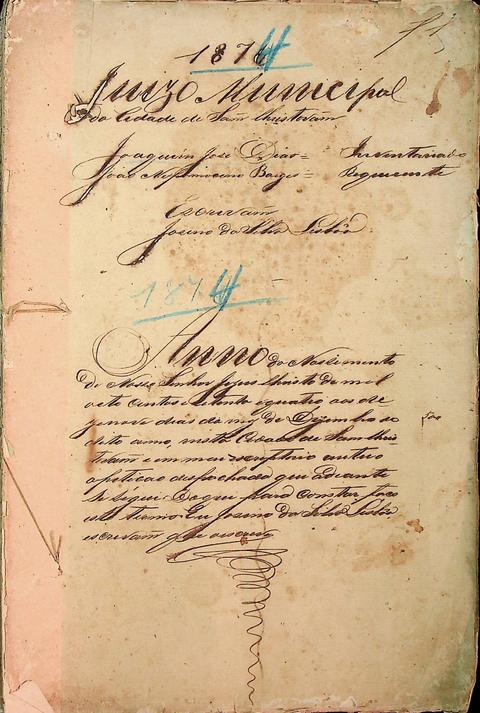 1874
Juizo Municipal
da Cidade de Sam Christovam
Joaquim José Dias = Inventariado
João Nepomuceno Borges = Requerente
Escrivam
Josino da Silva Lisbôa
1874
Anno do Nascimento
de Nosso Senhor Jezus Christo de mil
oito centos e setenta e quatro aos de
zenove dias do mez de Dezembro do
dito anno, nesta Cidade de Sam Chris-
tovam e em meu escriptorio autuo
a petição despachada que adiante
se segue. Do que para constar faço
este termo. Eu Josino da Silva Lisbôa
escrivam que escrevi